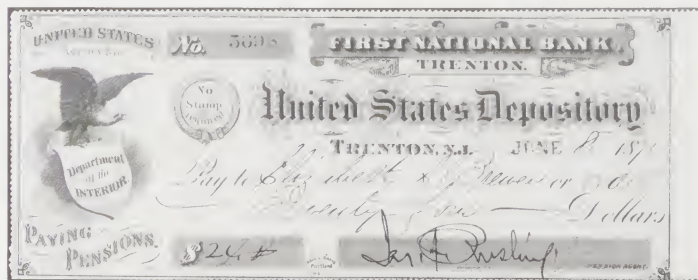 UNITED STATES
No.
FIRST NATIONAL BANK,
TRENTON.
No
Stamp
required
United States Depository
TRENTON, N.J. JUNE 8 187
Department
of the
INTERIOR.
Pay to Elizabeth Brewer or
Twenty Dollars
PAYING
PENSIONS.
$24
Jas F Rusling
PENSION AGENT.